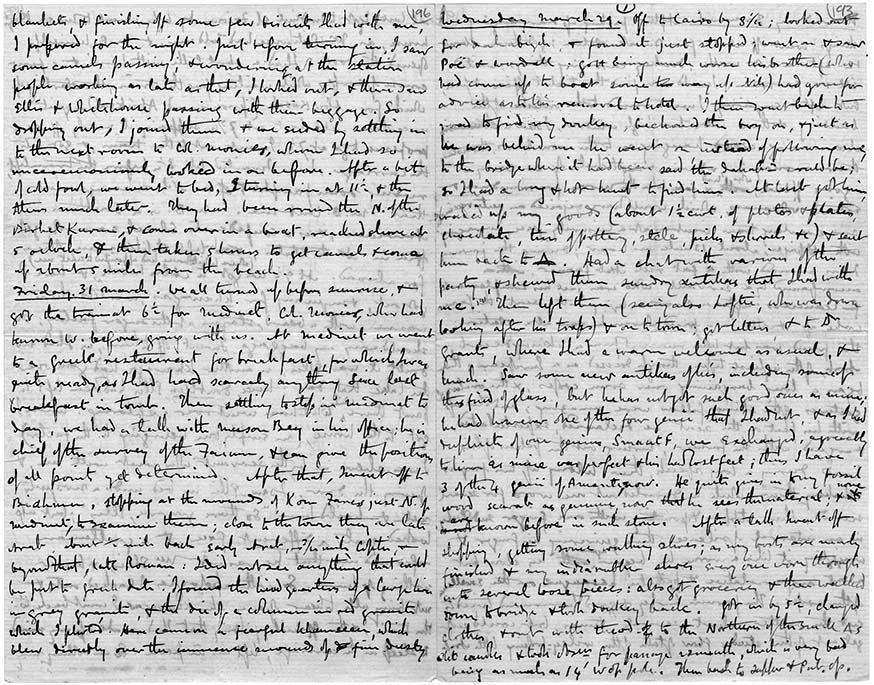 196
blankets, & finishing off some pea biscuits I had with me,
I prepared for the night. Just before turning in, I saw
some camels passing, & wondering at the station
people working as late as that, I looked out, & there saw
Ellis & Whitehouse passing with their baggage. So
dropping out, I joined them & we ended by settling in
to the next room to Col. Moncrieff, whom I had so
unceremoniously looked in on before. After a bit
of cold food, we went to bed, I turning in at 11½, & the
others much later. They had been round the N. of the
Birket Kurun, & come over in a boat, reached shore at
5 o'clock, & then taken 3 hours to get camels & come
up about 5 miles from the beach.
Friday. 31 March. We all turned up before sunrise, &
got the train at 6½ for Medinet. Col. Moncrieff, who had
known W. before, going with us. At Medinet we went
to a Greek restaurant for breakfast, for which I was
quite ready, as I had had scarcely anything since last
breakfast in tomb. Then settling to stop in Medinet to
day, we had a talk with Bey in his office; he is
chief of the survey of the Faium, & can give the position
of all points yet determined. After that, I went off to
Biahmu, stopping at the mounds of Kom Fares just N. of
Medinet, to examine them; close to the town they are late
Arab, about ½ mile back early Arab, ¾ mile Coptic, &
beyond that, late Roman: I did not see anything that could
be put to great date, I found the hind quarters of a large lion
in grey granite, & the die of a column in red granite
which I photoed. Here came on a fearful khamseen, which
blew directly over the immense mounds of fine dusty
193
Wednesday March 29. Off to Cairo by 8½; looked out
for dahabiyeh & found it just stopped; went on & saw
Poë & Woodall, getting being much worse his brother (who
had come up to boat some way up Nile) had gone for
advice as to his removal to hotel. I then went back to
road to find my donkey, beckoned the boy on, & just as
he was behind me he went on instead of following me,
to the bridge where it had been said the dahabieh would be;
so I had a long & hot hunt to find him. At last got him,
packed up my goods (about 1½ cwt. of photo plates,
chocolate, tins of pottery, stele, picks & shovels &c) & sent
him back to Δ. Had a chat with various of the
party, & shewed them sundry antikas that I had with
me. Then left them (seeing also Loftie, who was down
looking after his traps) & on to town; got letters, & to Dr
Grant's, where I had a warm welcome as usual, &
lunch. Saw some new antikas of his, including some of
the find of glass, but he has not got such good ones as mine;
he had however one of the four genii that I had not, & as I had
duplicate of one genius, Smautf, we exchanged, agreeably
to him as mine was perfect & his had lost feet; thus I have
3 of the 4 genii of Amenti now. He quite gives in to my fossil
wood scarab as genuine now that he sees the material, & none
known before in such stone. After a talk I went off
shopping, getting some walking shoes; as my boots are nearly
finished & my indiarubber shoes every one worn through
into several loose pieces: also got groceries & then walked
down to bridge & took donkey back. Got in by 5½, changed
clothes, & out with theod. to the Northern of the small Δs
lit candles & took obsns for passage azimuth, which is very bad
being as much as 14' W. of pole. Then back to supper & Pot. op.